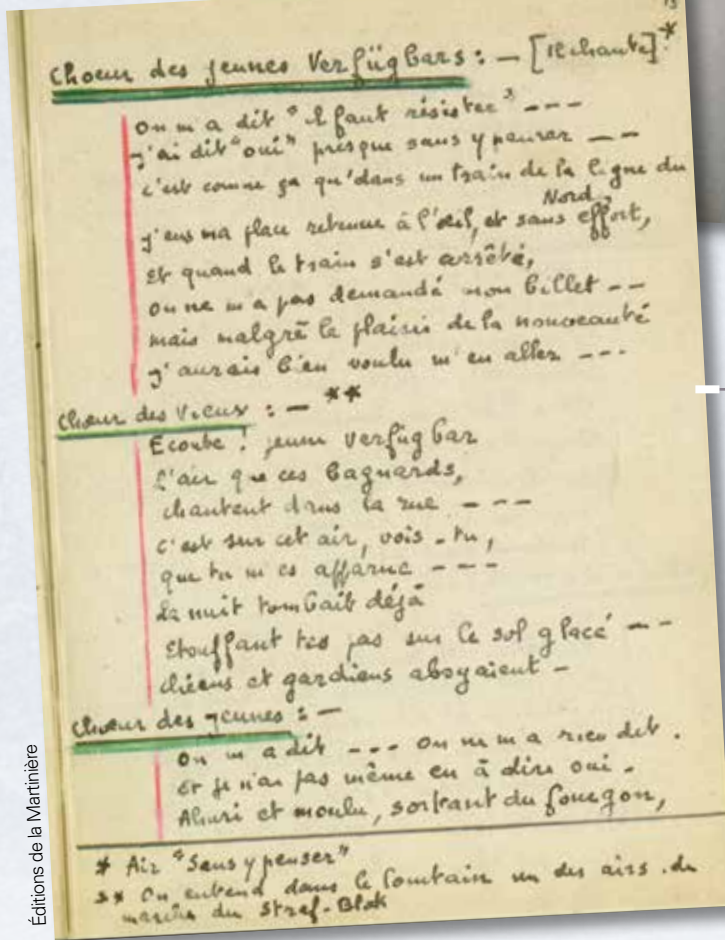 13
Choeur des jeunes Verfügbars : — [Il chante] *
On m'a dit "il faut résister" ---
j'ai dit "oui" presque sans y penser --
c'est comme ça qu'dans un train de la ligne du
Nord
j'eus ma place retenue à l'œil, et sans effort,
Et quand le train s'est arrêté,
on ne m'a pas demandé mon billet --
mais malgré le plaisir de la nouveauté
j'aurais bien voulu m'en aller ---
Choeur des Vieux : — **
Ecoute ! jeune verfügbar
L'air que ces bagnards,
chantent dans la rue ---
c'est sur cet air, vois-tu,
que tu m'es apparue ---
La nuit tombait déjà
Etouffant tes pas sur le sol glacé --
chiens et gardiens aboyaient -
Choeur des jeunes : —
On m'a dit --- on ne m'a rien dit.
Et je n'ai pas même eu à dire oui.
Ahuri et moulu, sortant du fourgon,
* Air "Sans y penser"
** On entend dans le lointain un des airs de
marche du Straf-Blok
Éditions de la Martinière